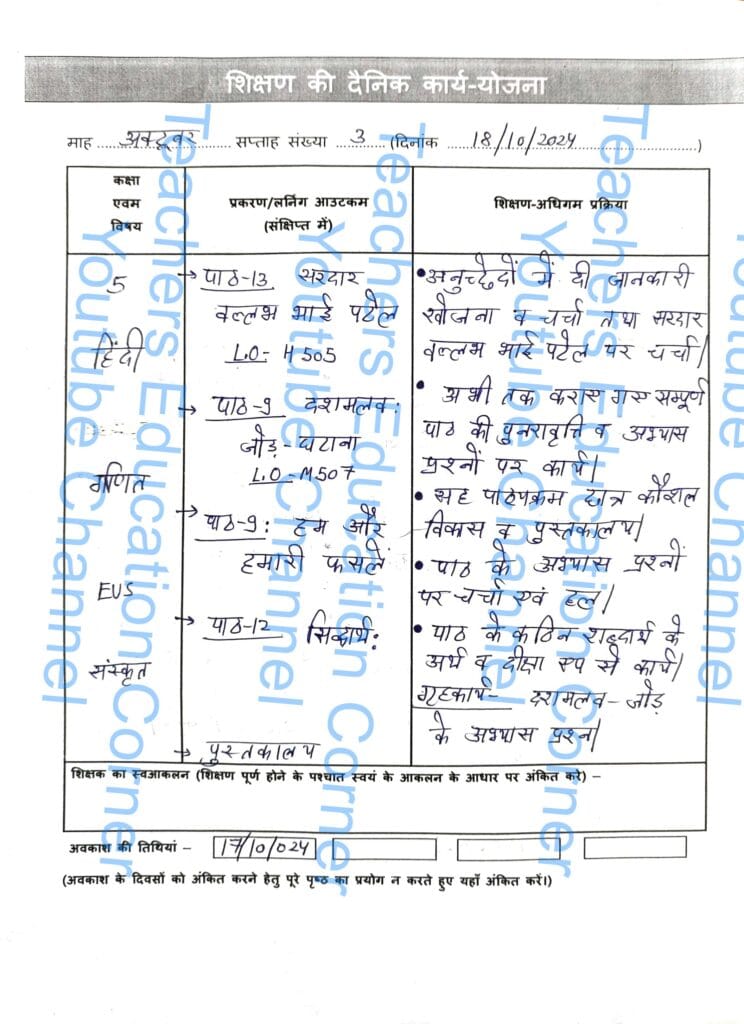 शिक्षण की दैनिक कार्य-योजना
माह अक्टूबर सप्ताह संख्या 3 (दिनांक 18/10/2024)
कक्षा
एवम
विषय
प्रकरण/लर्निंग आउटकम
(संक्षिप्त में)
शिक्षण-अधिगम प्रक्रिया
5
हिंदी
गणित
EVS
संस्कृत
→ पाठ-13 सरदार
वल्लभ भाई पटेल
L.O- H505
→ पाठ-9 दशमलव:
जोड़-घटाना
L.O-M507
→ पाठ-9: हम और
हमारी फसलें
→ पाठ-12 सिद्धार्थ:
→ पुस्तकालय
• अनुच्छेदों में दी जानकारी
खोजना व चर्चा तथा सरदार
वल्लभ भाई पटेल पर चर्चा।
• अभी तक कराए गए सम्पूर्ण
पाठ की पुनरावृत्ति व अभ्यास
प्रश्नों पर कार्य।
• सह पाठ्यक्रम छात्र कौशल
विकास व पुस्तकालय।
• पाठ के अभ्यास प्रश्नों
पर चर्चा एवं हल।
• पाठ के कठिन शब्दार्थ के
अर्थ व दीक्षा एप से कार्य।
गृहकार्य- दशमलव-जोड़
के अभ्यास प्रश्न।
शिक्षक का स्वआकलन (शिक्षण पूर्ण होने के पश्चात स्वयं के आकलन के आधार पर अंकित करे) –
अवकाश की तिथियां – 17/10/024
(अवकाश के दिवसों को अंकित करने हेतु पूरे पृष्ठ का प्रयोग न करते हुए यहाँ अंकित करें।)
Teachers Education Corner
Youtube Channel
Teachers Education Corner
Youtube Channel
Teachers Education Corner
Youtube Channel